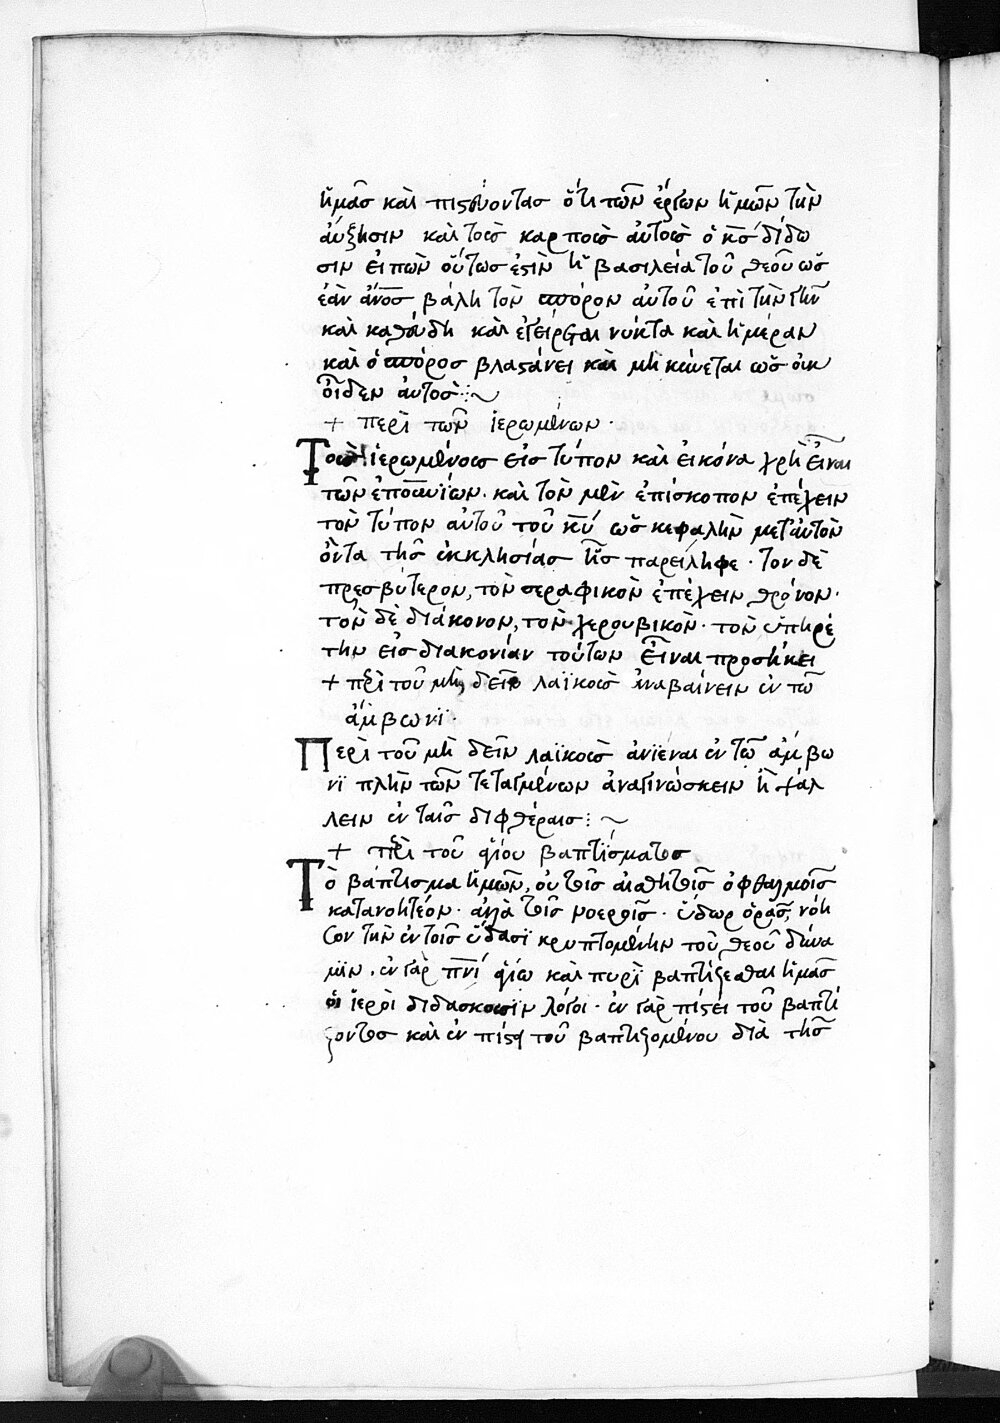 ἡμᾶσ καὶ πιστεύοντασ ὅτι τῶν ἔργων ἡμῶν τὴν
αὔξησιν καὶ τοὺσ καρποὺσ αὐτοὺσ ὁ κ̅σ̅ δίδω
σιν εἰπὼν οὕτωσ ἐστὶν ἡ βασιλεία τοῦ θεοῦ ὡσ
ἐὰν ἄν̅ο̅σ̅ βάλη τὸν σπόρον αὐτοῦ ἐπὶ τὴν γῆν
καὶ καθεύδη καὶ ἐγείρεται νύκτα καὶ ἡμέραν
καὶ ὁ σπόρος βλαστάνει καὶ μηκύνεται ὡσ οὐκ
οἶδεν αὐτόσ :~
+ περὶ τῶν ἱερωμένων ·
Τοὺσ ἱερωμένουσ εἰσ τύπον καὶ εἰκόνα χρὴ εἶναι
τῶν ἐπουρανίων · καὶ τὸν μὲν ἐπίσκοπον ἐπέχειν
τὸν τύπον αὐτοῦ τοῦ κ̅υ̅ ὡσ κεφαλὴν μετ' αὐτὸν
ὄντα τῆσ ἐκκλησίασ ἧσ παρείληφε · τὸν δὲ
πρεσβύτερον, τὸν σεραφικὸν ἐπέχειν θρόνον ·
τὸν δὲ διάκονον, τὸν χερουβικὸν · τὸν ὑπηρέ
την εἰσ διακονίαν τούτων εἶναι προσήκει
+ περὶ τοῦ μὴ δεῖν λαϊκοὺσ ἀναβαίνειν ἐν τῶ
ἄμβωνϊ ·
Περὶ τοῦ μὴ δεῖν λαϊκοὺσ ἀνϊέναι ἐν τῶ ἄμβω
νϊ πλὴν τῶν τεταγμένων ἀναγινώσκειν ἢ ψάλ
λειν ἐν ταῖσ διφθέραισ :~
+ περὶ τοῦ ἁγίου βαπτίσματοσ
Τὸ βάπτισμα ἡμῶν, οὐ τοῖσ αἰσθητοῖσ ὀφθαλμοῖσ
κατανοητέον · ἀλλὰ τοῖσ νοεροῖσ · ὕδωρ ὁρᾶσ, νόη
σον τὴν ἐν τοῖσ ὕδασϊ κρυπτομένην τοῦ θεοῦ δύνα
μϊν · ἐν γὰρ π̅ν̅ι̅ ἁγίω καὶ πυρὶ βαπτίζεσθαι ἡμᾶσ
οἱ ἱεροὶ διδάσκουσϊν λόγοι · ἐν γὰρ πίστει τοῦ βαπτί
ζοντοσ καὶ ἐν πίστει τοῦ βαπτιζομένου διὰ τῆσ